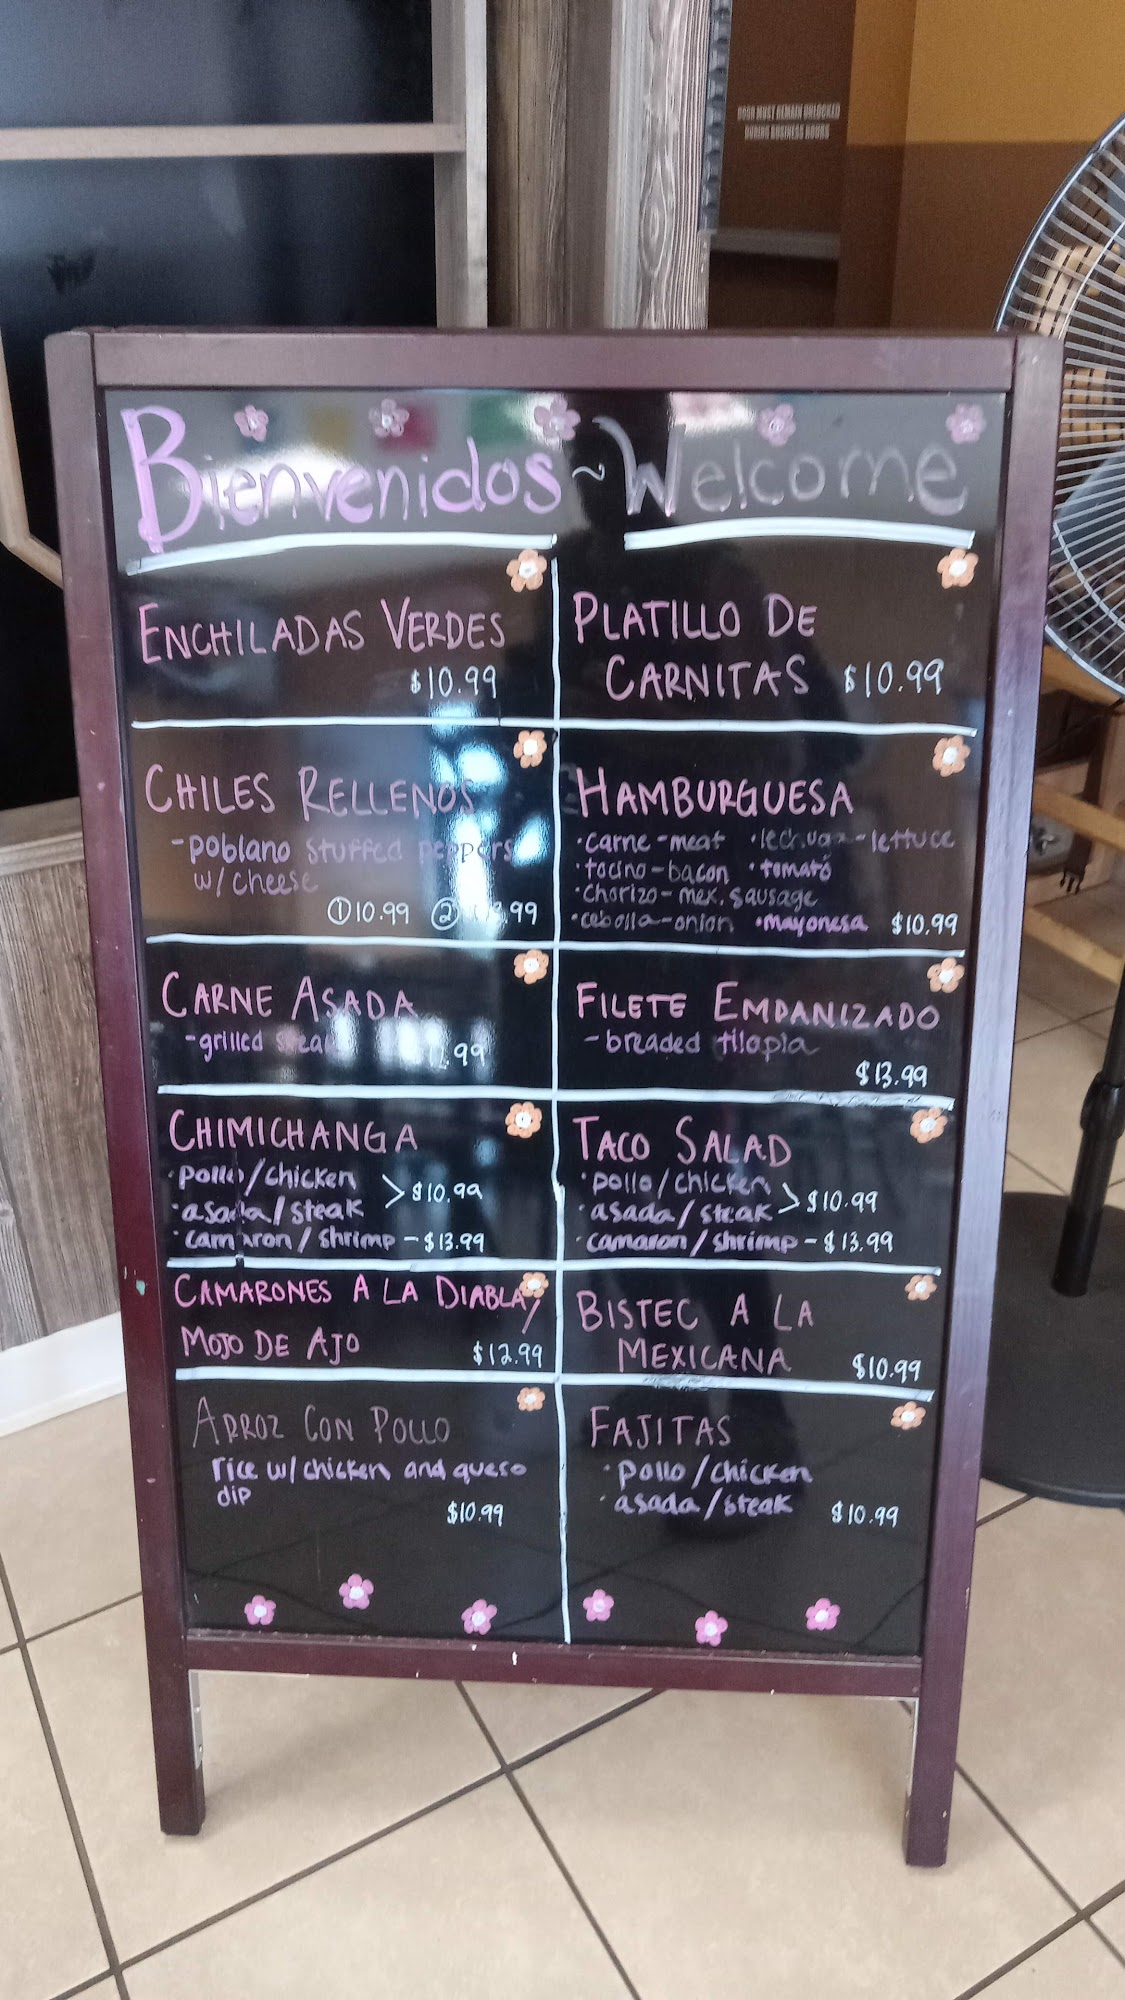 DOOR MUST REMAIN UNLOCKED
DURING BUSINESS HOURS
Bienvenidos ~ Welcome
ENCHILADAS VERDES
$10.99
CHILES RELLENOS
- poblano stuffed peppers
w/ cheese
① 10.99 ②
CARNE ASADA
- grilled steak
CHIMICHANGA
· pollo/chicken
· asada/steak > $10.99
· camaron/shrimp - $13.99
CAMARONES A LA DIABLA/
MOJO DE AJO
$12.99
ARROZ CON POLLO
rice w/ chicken and queso
dip
$10.99
PLATILLO DE
CARNITAS $10.99
HAMBURGUESA
· carne - meat · lechuga - lettuce
· tocino - bacon · tomato
· chorizo - mex. sausage
· cebolla - onion · mayonesa $10.99
FILETE EMPANIZADO
- breaded tilapia
$13.99
TACO SALAD
· pollo/chicken
· asada/steak > $10.99
· camaron/shrimp - $13.99
BISTEC A LA
MEXICANA $10.99
FAJITAS
· pollo/chicken
· asada/steak $10.99